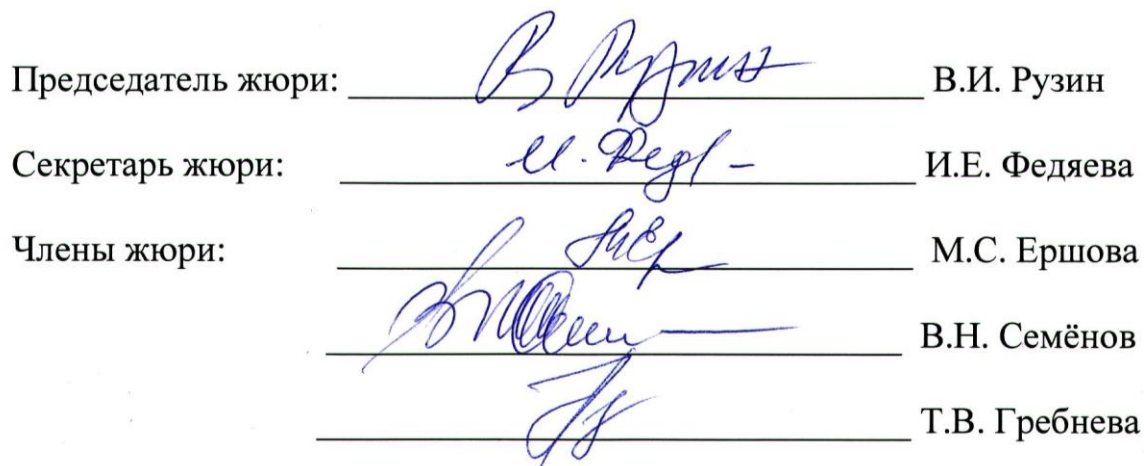 Председатель жюри: В.И. Рузин
Секретарь жюри: И.Е. Федяева
Члены жюри: М.С. Ершова
В.Н. Семёнов
Т.В. Гребнева